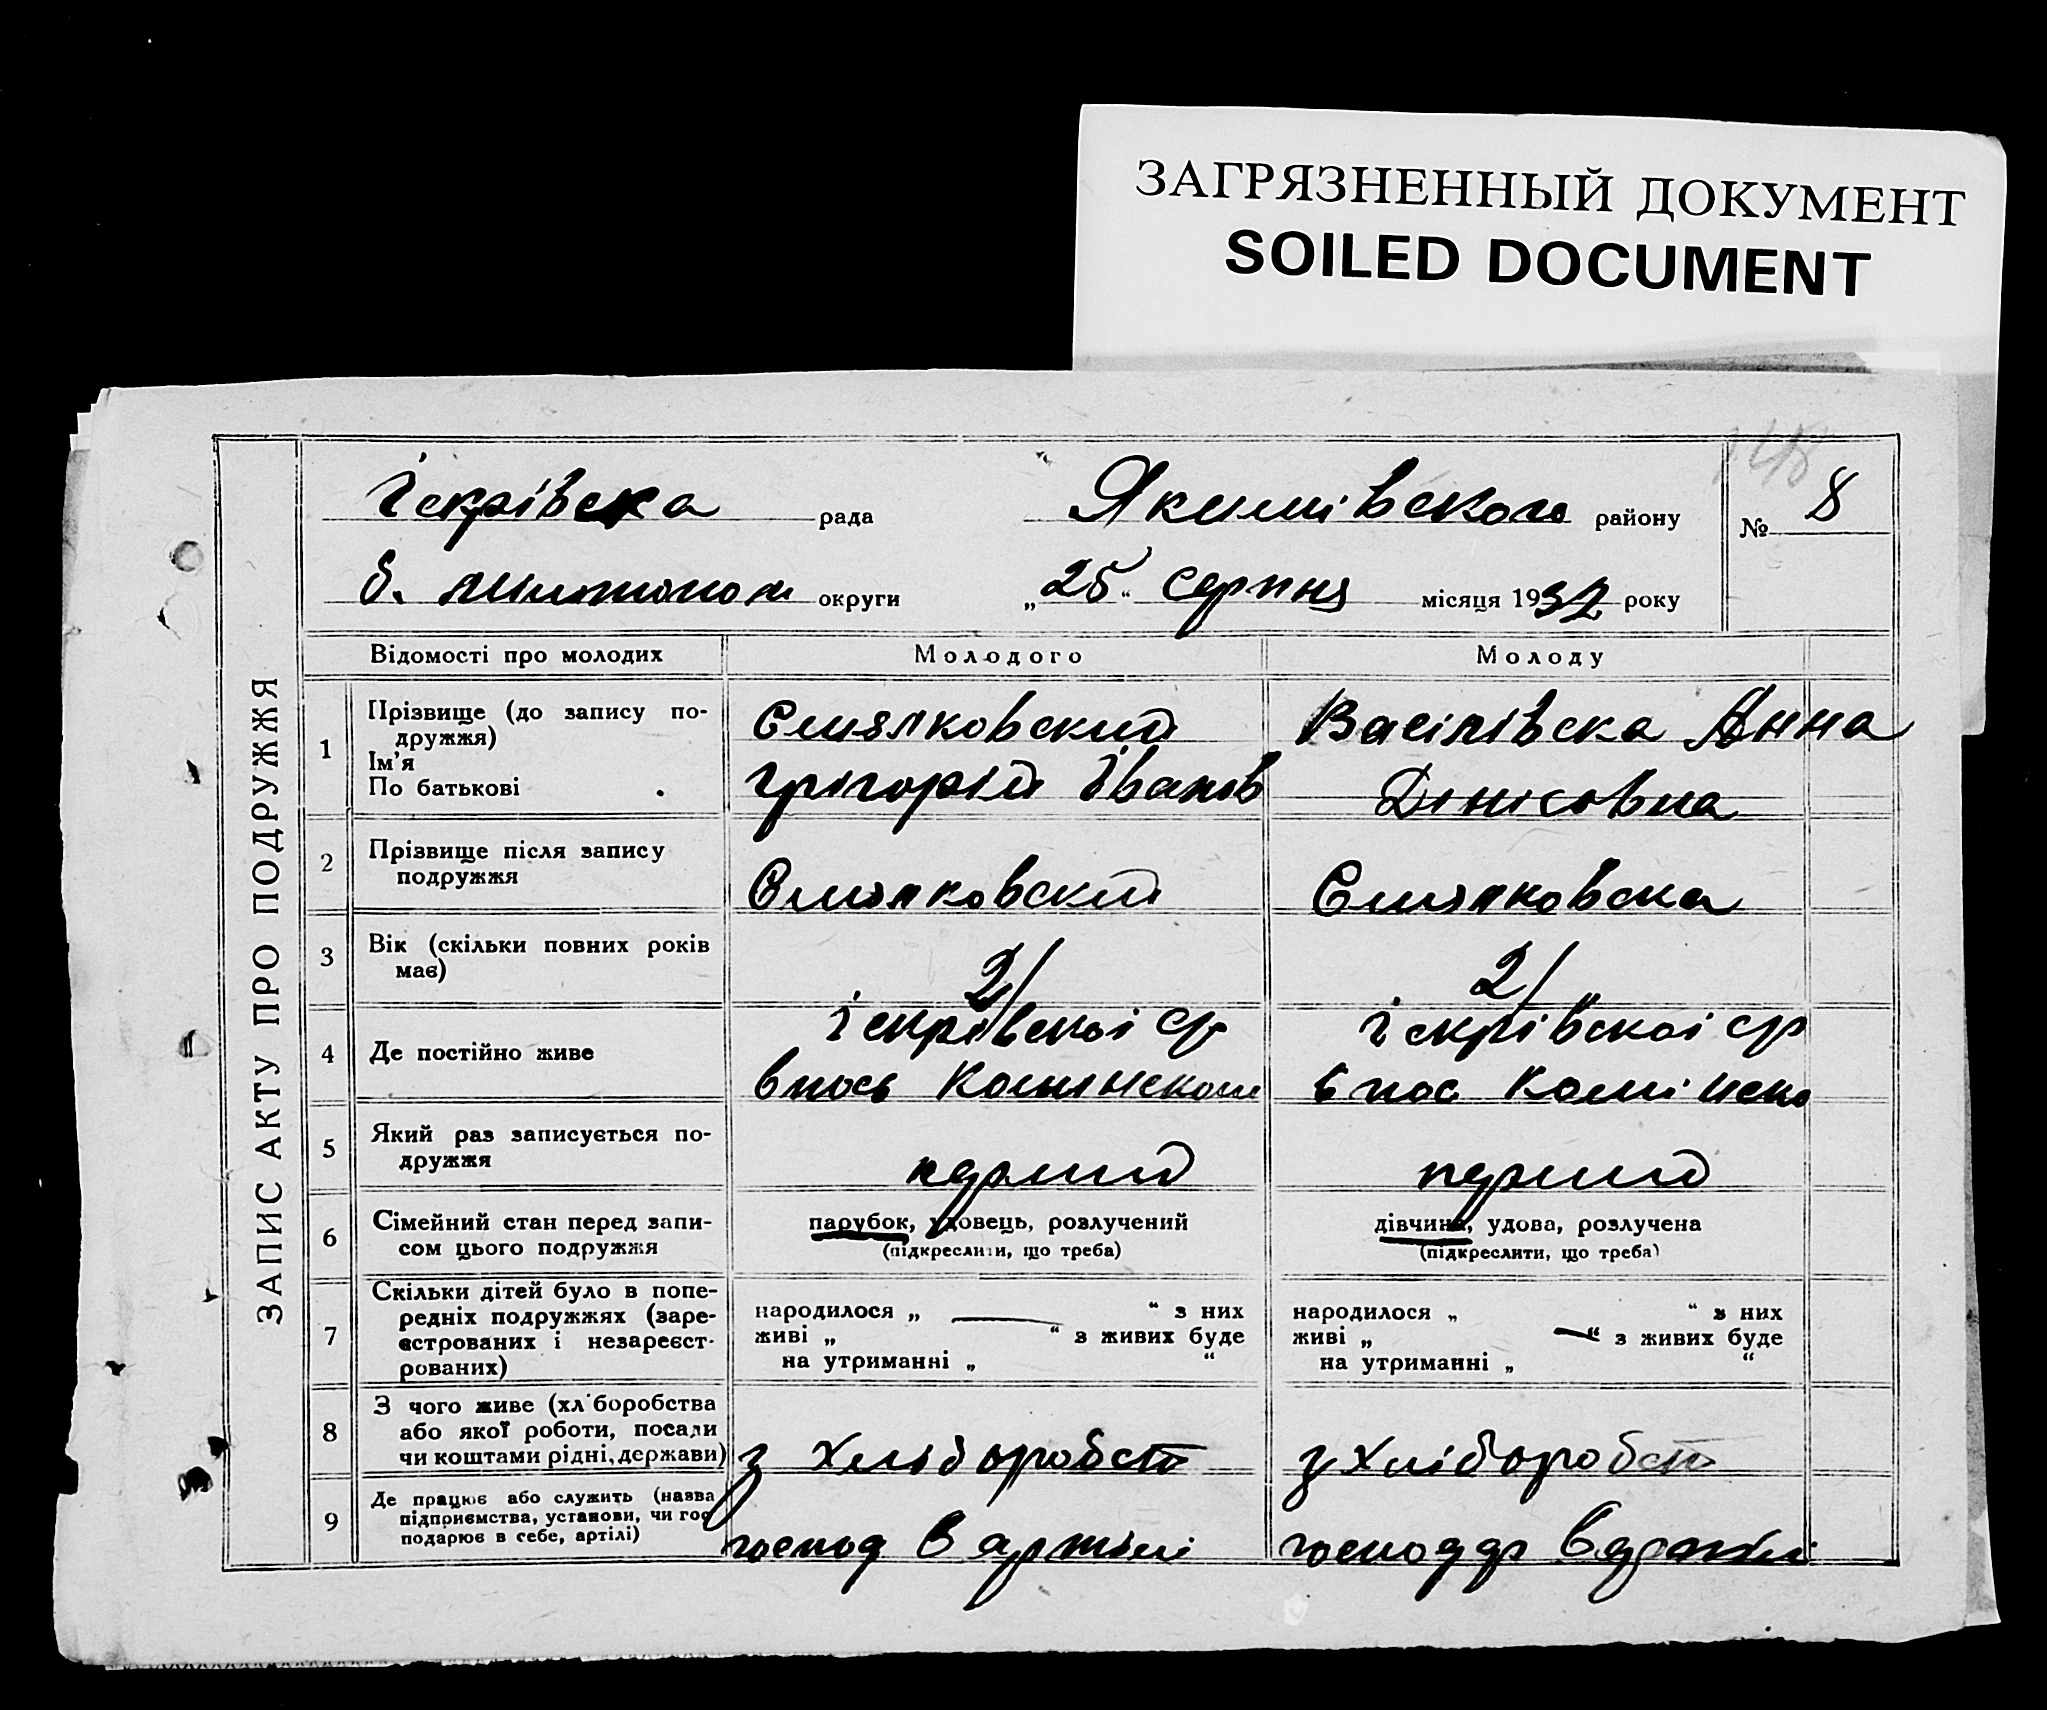 ЗАГРЯЗНЕННЫЙ ДОКУМЕНТ
SOILED DOCUMENT
ЗАПИС АКТУ ПРО ПОДРУЖЖЯ
Іскрівска рада Якимівского району № 8
б. округи „25“ серпня місяця 1932 року
Відомості про молодих Молодого Молоду
1 Прізвище (до запису по-
дружжя)
Ім’я
По батькові
Смялковский
Грігорій Іванів
Васілівска Анна
Дінісовна
2 Прізвище після запису
подружжя
Смялковский
Смялковска
3 Вік (скільки повних років
має)
21
21
4 Де постійно живе
іскрівскоі ср
в пось
іскрівскоі ср
в пос
5 Який раз записується по-
дружжя
перший
перший
6 Сімейний стан перед запи-
сом цього подружжя
парубок, удовець, розлучений
(підкреслити, що треба)
дівчина, удова, розлучена
(підкреслити, що треба)
7 Скільки дітей було в попе-
редніх подружжях (заре-
єстрованих і незареєст-
рованих)
народилося „ — “ з них
живі „ “ з живих буде
на утриманні „ “
народилося „ “ з них
живі „ — “ з живих буде
на утриманні „ “
8 З чого живе (хліборобства
або якої роботи, посади
чи коштами рідні, держави)
з хліборобст
з хліборобст
9 Де працює або служить (назва
підприємства, установи, чи гос
подарює в себе, артілі)
господ в артілі
господар в артілі